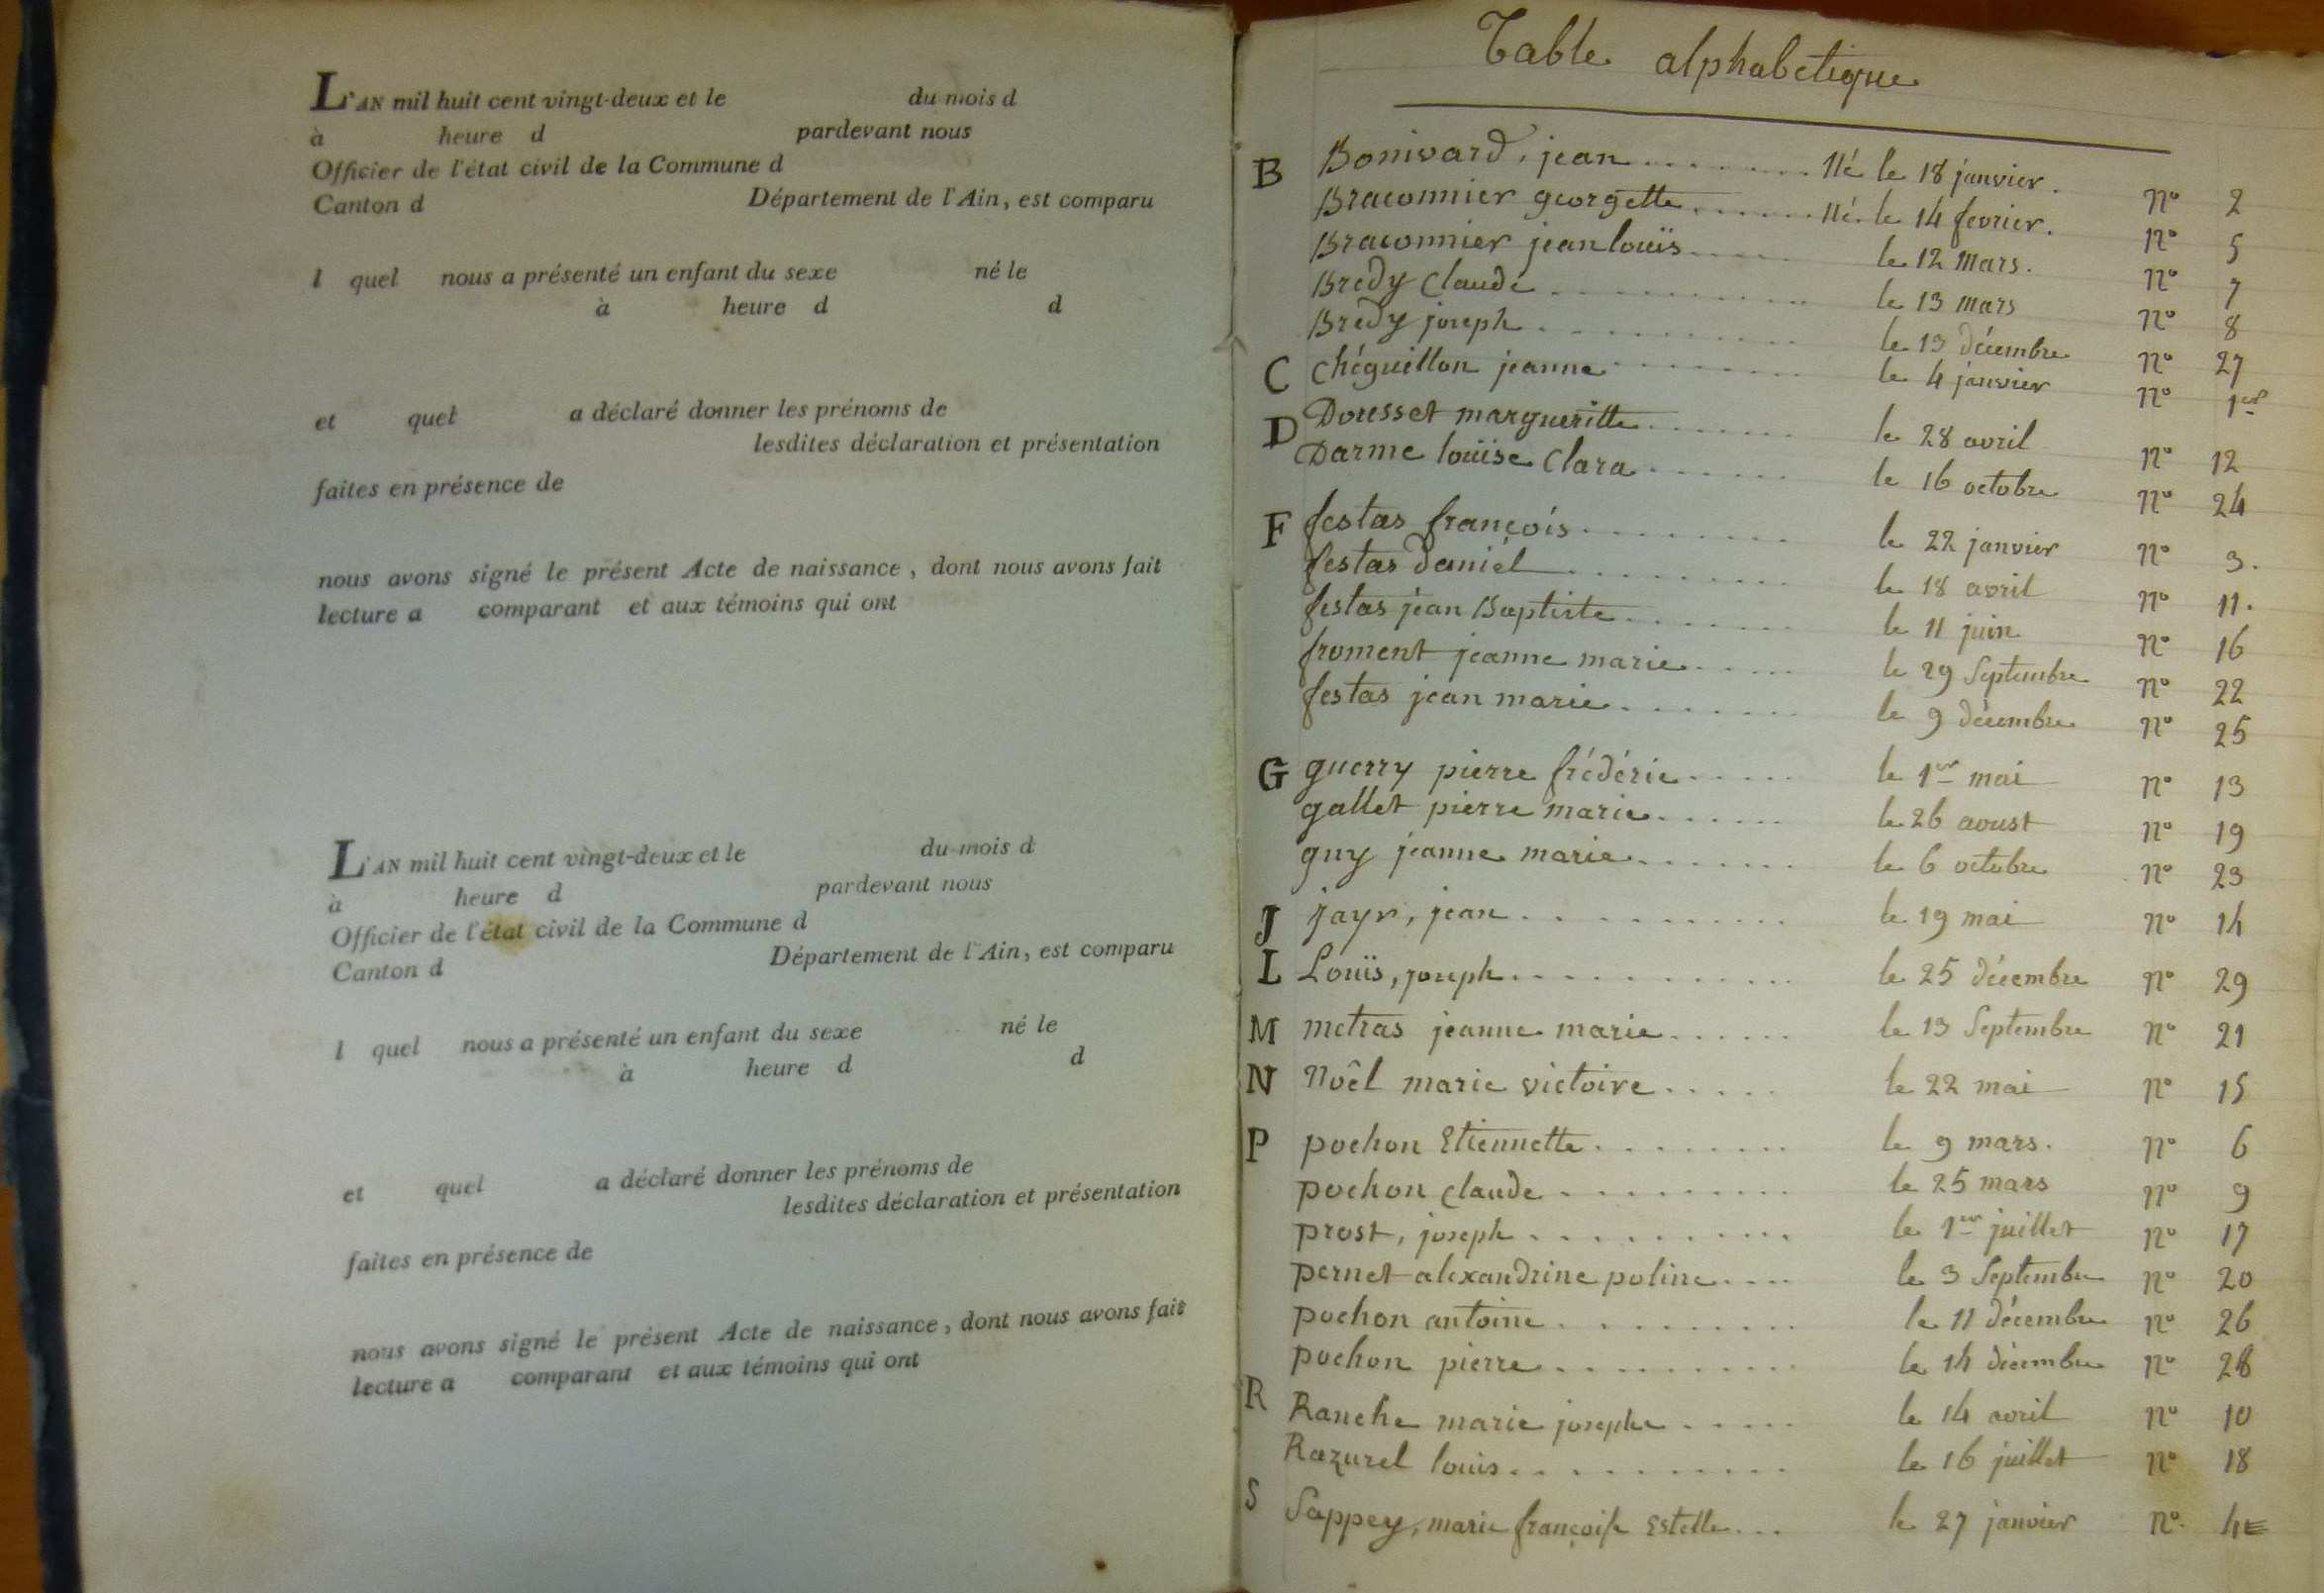 L'AN mil huit cent vingt-deux et le du mois d
à heure d pardevant nous
Officier de l'état civil de la Commune d
Canton d Département de l'Ain, est comparu
l quel nous a présenté un enfant du sexe né le
à heure d d
et quel a déclaré donner les prénoms de
lesdites déclaration et présentation
faites en présence de
nous avons signé le présent Acte de naissance, dont nous avons fait
lecture a comparant et aux témoins qui ont
L'AN mil huit cent vingt-deux et le du mois d
à heure d pardevant nous
Officier de l'état civil de la Commune d
Canton d Département de l'Ain, est comparu
l quel nous a présenté un enfant du sexe né le
à heure d d
et quel a déclaré donner les prénoms de
lesdites déclaration et présentation
faites en présence de
nous avons signé le présent Acte de naissance, dont nous avons fait
lecture a comparant et aux témoins qui ont
Table alphabetique
B Bonivard, jean ........ Né le 18 janvier. n° 2
Braconnier georgette ...... Né. le 14 fevrier. n° 5
Braconnier jean louïs ..... le 12 mars. n° 7
Bredy Claude ........... le 13 mars n° 8
Bredy joseph ........... le 13 décembre n° 27
C Chéguillon jeanne ........ le 4 janvier n° 1er
D Dousset margueritte ....... le 28 avril n° 12
Darme louïse Clara ....... le 16 octobre n° 24
F festas françois ......... le 22 janvier n° 3.
festas daniél .......... le 18 avril n° 11.
festas jean Baptiste ....... le 11 juin n° 16
froment jeanne marie ..... le 29 Septembre n° 22
festas jean marie ....... le 9 décembre n° 25
G guerry pierre frédéric ..... le 1er mai n° 13
gallet pierre marie ...... le 26 aoust n° 19
guy jeanne marie ....... le 6 octobre n° 23
J jayr, jean .......... le 19 mai n° 14
L Louïs, joseph .......... le 25 décembre n° 29
M metras jeanne marie ...... le 13 Septembre n° 21
N Noêl marie victoire ..... le 22 mai n° 15
P pochon Etiennette ........ le 9 mars. n° 6
pochon claude ......... le 25 mars n° 9
prost, joseph .......... le 1er juillet n° 17
pernet alexandrine poline .... le 3 Septembre n° 20
pochon antoine ......... le 11 décembre n° 26
pochon pierre ......... le 14 décembre n° 28
R Ranche marie josephe ...... le 14 avril n° 10
Razurel louis .......... le 16 juillet n° 18
S Sappey, marie françoise Estelle ... le 27 janvier n° 4